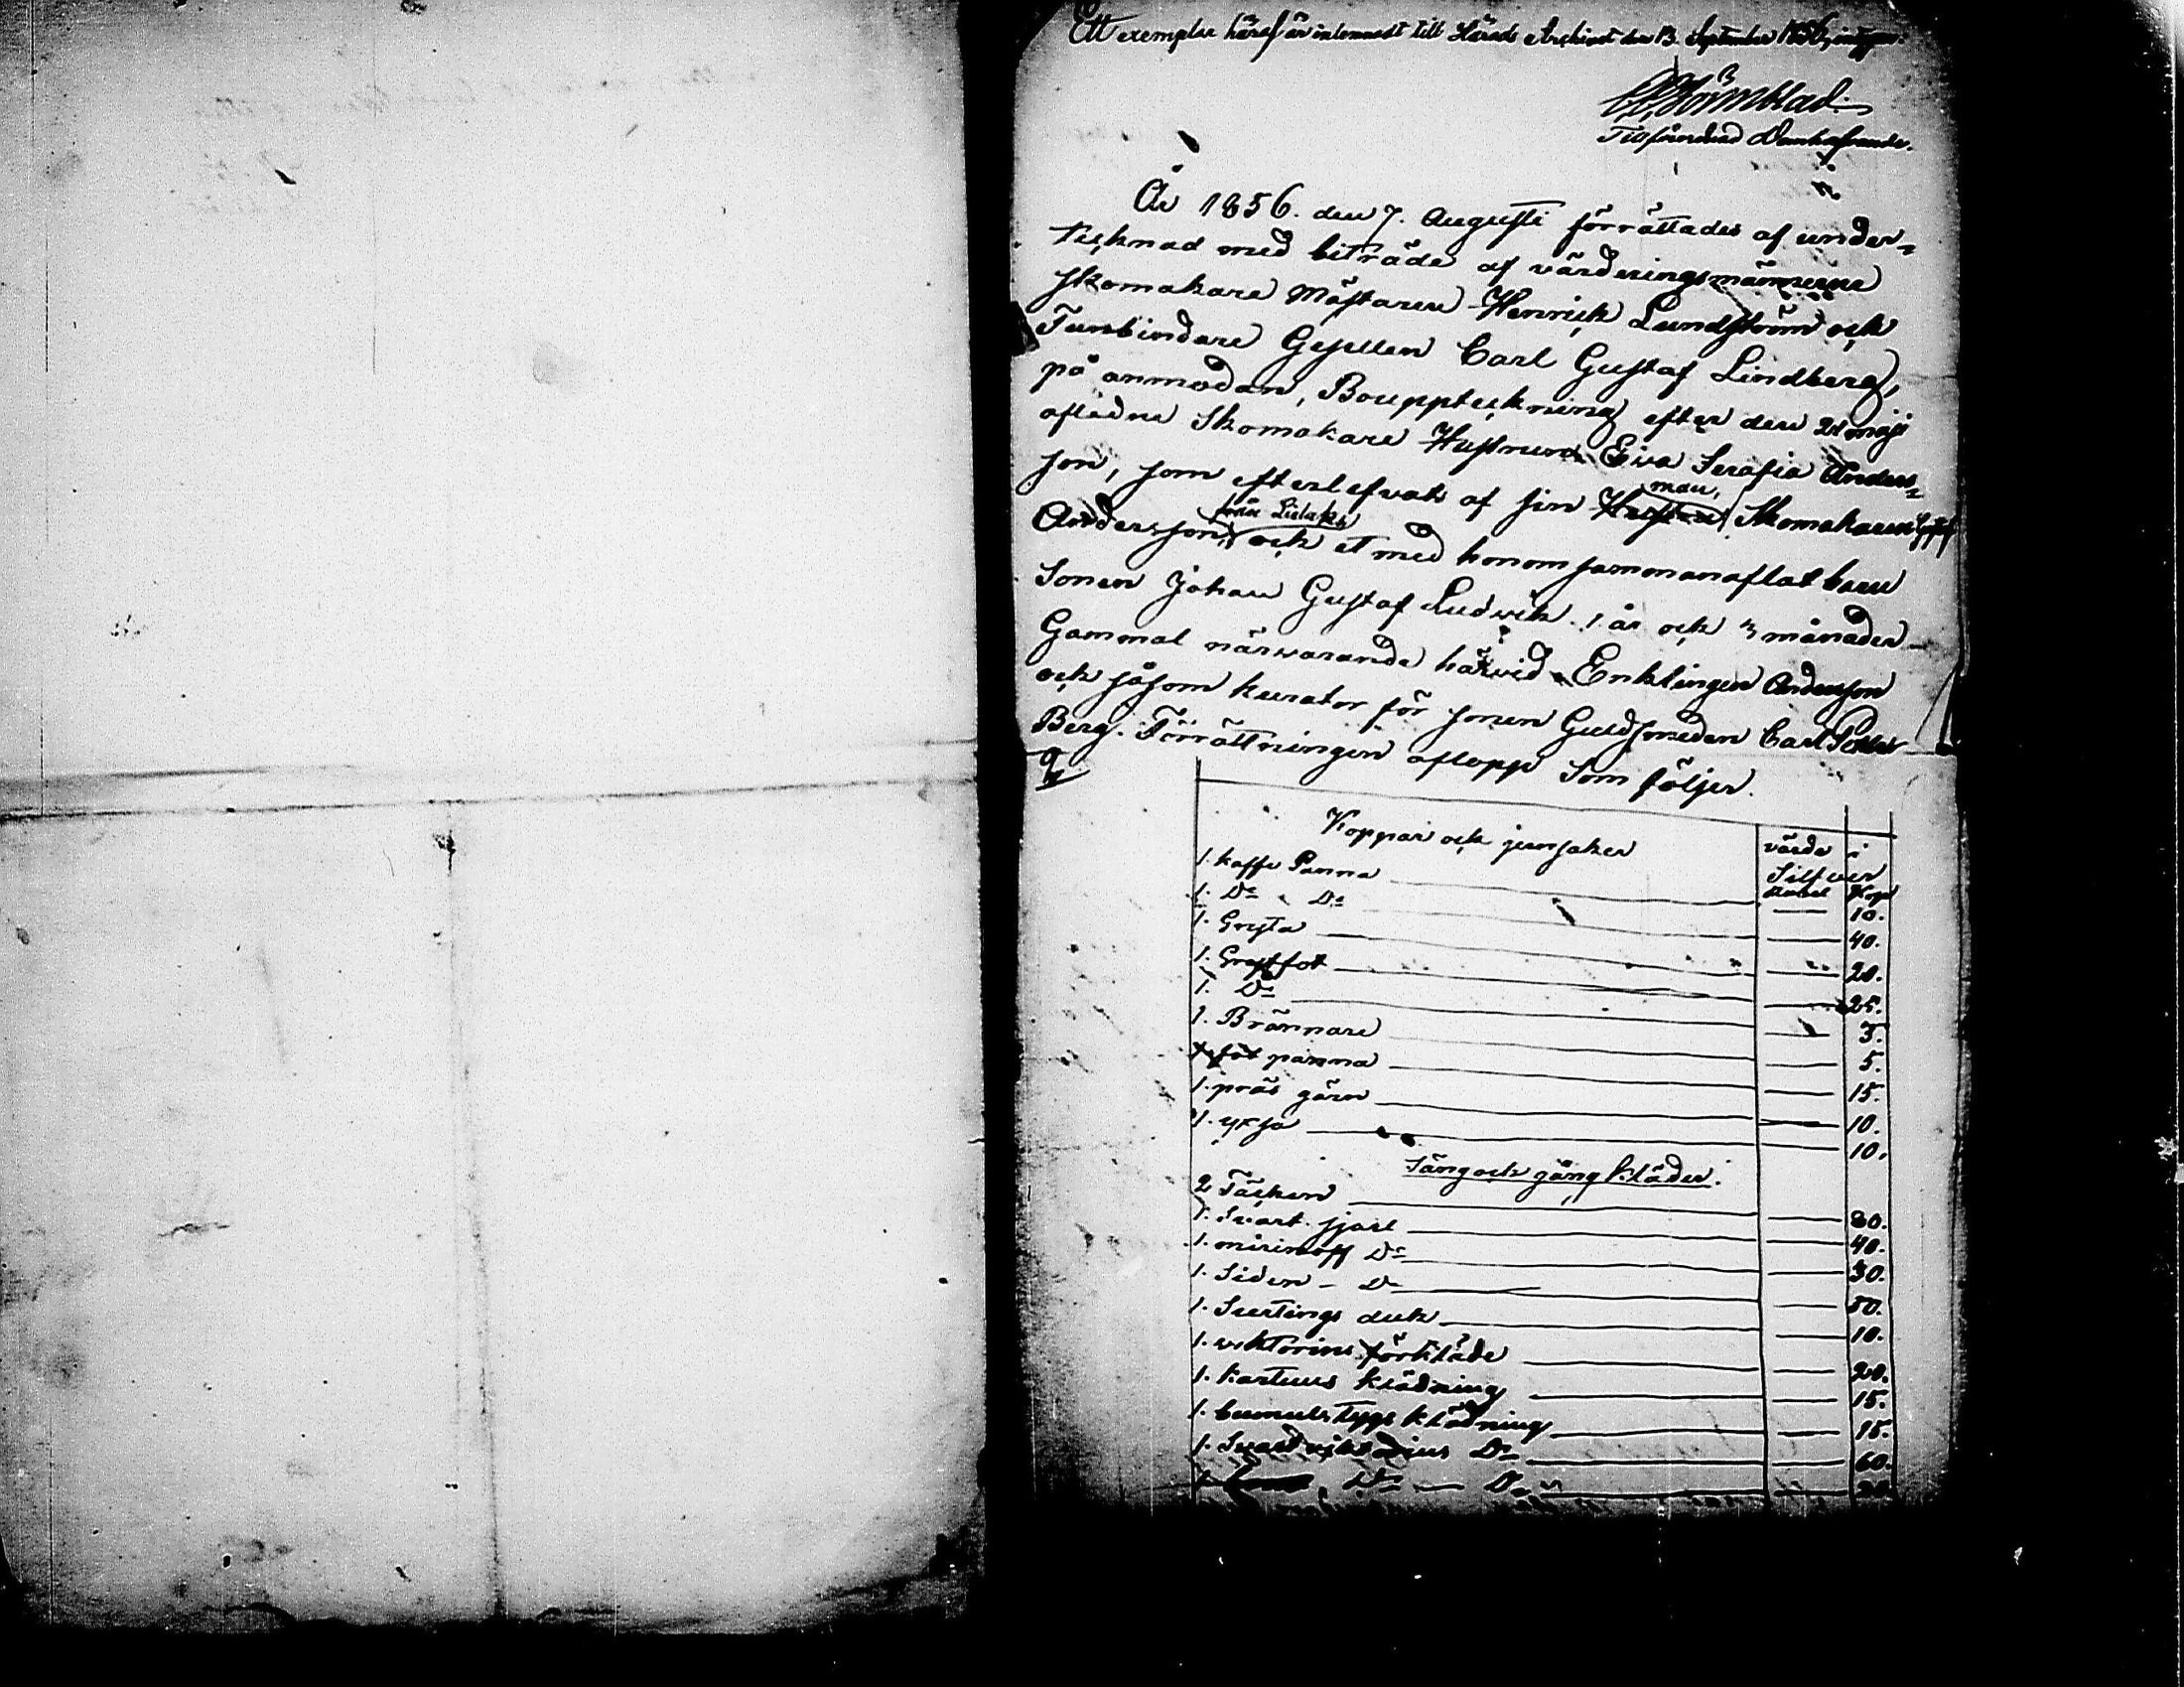 Ett exemplar häraf är inlemnadt till Härads Archivet den 13 September 1856, intygar.
Tillförordnad Domhafvande.
År 1856. den 7. Augusti förrättades af under=
tecknad med biträde af värderingsmännerne
skomakare Mästaren Henrick Lundström och
Tunbindare Gesellen Carl Gustaf Lindberg,
på anmodan, Bouppteckning efter den 21 maji
aflädne Skomakare Hustrurn Eiva Serafia Anders=
son, som efterlefvats af sin man, Skomakaren Gustaf
Andersson, från Lielaks och et med honom sammanaflat barn
Sonen Johan Gustaf Ludwik. 1 år och 3 månader
Gammal närwarande härvid Enklingen Andersson
och såsom kurator för sonen Guldsmeden Carl Petter
Berg. Förrättningen aflopp Som följer.
Koppar och jernsaker
värde i
Silfver
Rubel Kop
1. kaffe Panna 10.
1. Do Do 40.
1. Gryta 20.
1. Grytfot 25.
1. Do 3.
1. Brännare 5.
1. föt panna 15.
1. präs gärn 10.
1. yxsa 10.
Säng och gång kläder.
2 Täcken 80.
1. Svart sjarl 40.
1. mirinoff Do 30.
1. Siden - Do 50.
1. Surtings duk 10.
1. viktorins förkläde 20.
1. kartuns klädning 15.
1. bumuls tygs klädning 15.
1. Svart viktorius Do 60.
1. Do Do 20.